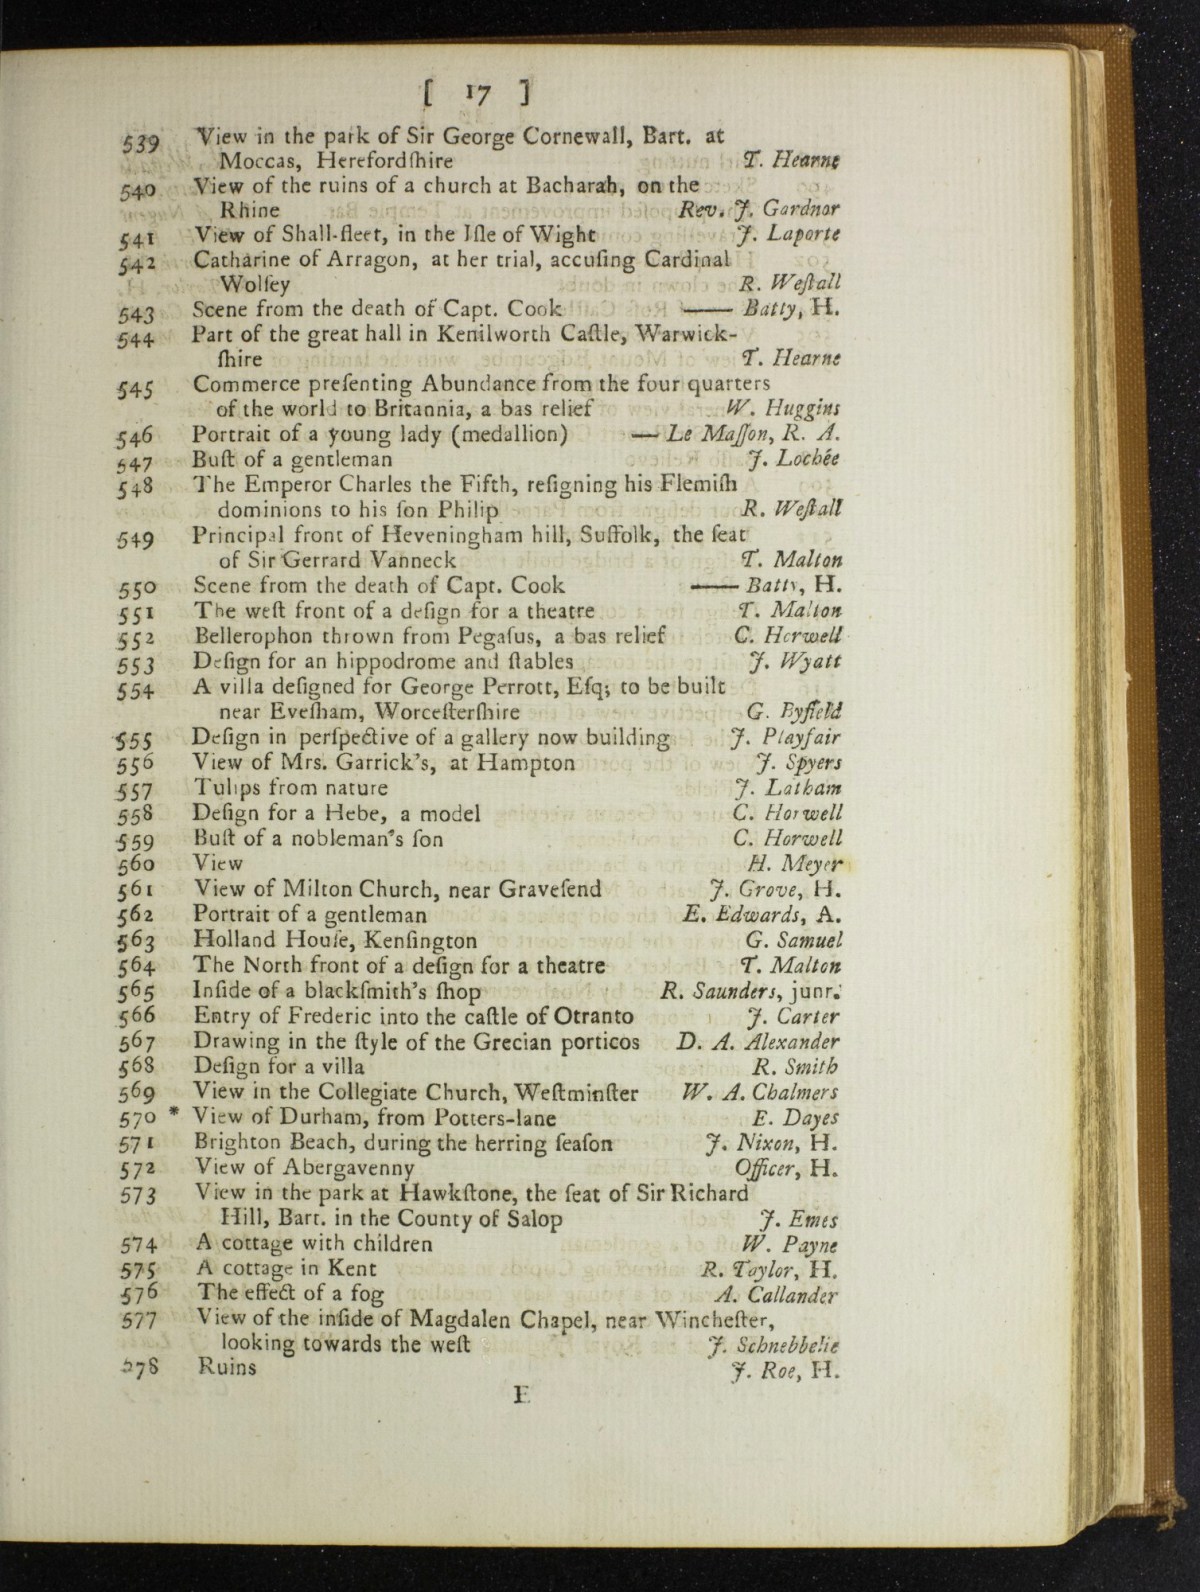 [ 17 ]
539 View in the park of Sir George Cornewall, Bart. at
Moccas, Herefordſhire T. Hearne
540 View of the ruins of a church at Bacharah, on the
Rhine Rev. J. Gardnor
541 View of Shall-fleet, in the Iſle of Wight J. Laporte
542 Catharine of Arragon, at her trial, accuſing Cardinal
Wolſey R. Weſtall
543 Scene from the death of Capt. Cook —— Batty, H.
544 Part of the great hall in Kenilworth Caſtle, Warwick-
ſhire T. Hearne
545 Commerce preſenting Abundance from the four quarters
of the world to Britannia, a bas relief W. Huggins
546 Portrait of a young lady (medallion) — Le Maſſon, R. A.
547 Buſt of a gentleman J. Lochée
548 The Emperor Charles the Fifth, reſigning his Flemiſh
dominions to his ſon Philip R. Weſtall
549 Principal front of Heveningham hill, Suffolk, the ſeat
of Sir Gerrard Vanneck T. Malton
550 Scene from the death of Capt. Cook —— Batty, H.
551 The weſt front of a deſign for a theatre T. Malton
552 Bellerophon thrown from Pegaſus, a bas relief C. Horwell
553 Deſign for an hippodrome and ſtables J. Wyatt
554 A villa deſigned for George Perrott, Eſq; to be built
near Eveſham, Worceſterſhire G. Byfield
555 Deſign in perſpective of a gallery now building J. Playfair
556 View of Mrs. Garrick's, at Hampton J. Spyers
557 Tulips from nature J. Latham
558 Deſign for a Hebe, a model C. Horwell
559 Buſt of a nobleman's ſon C. Horwell
560 View H. Meyer
561 View of Milton Church, near Graveſend J. Grove, H.
562 Portrait of a gentleman E. Edwards, A.
563 Holland Houſe, Kenſington G. Samuel
564 The North front of a deſign for a theatre T. Malton
565 Inſide of a blackſmith's ſhop R. Saunders, junr.
566 Entry of Frederic into the caſtle of Otranto J. Carter
567 Drawing in the ſtyle of the Grecian porticos D. A. Alexander
568 Deſign for a villa R. Smith
569 View in the Collegiate Church, Weſtminſter W. A. Chalmers
570 * View of Durham, from Potters-lane E. Dayes
571 Brighton Beach, during the herring ſeaſon J. Nixon, H.
572 View of Abergavenny Officer, H.
573 View in the park at Hawkſtone, the ſeat of Sir Richard
Hill, Bart. in the County of Salop J. Emes
574 A cottage with children W. Payne
575 A cottage in Kent R. Taylor, H.
576 The effect of a fog A. Callander
577 View of the inſide of Magdalen Chapel, near Wincheſter,
looking towards the weſt J. Schnebbelie
578 Ruins J. Roe, H.
E